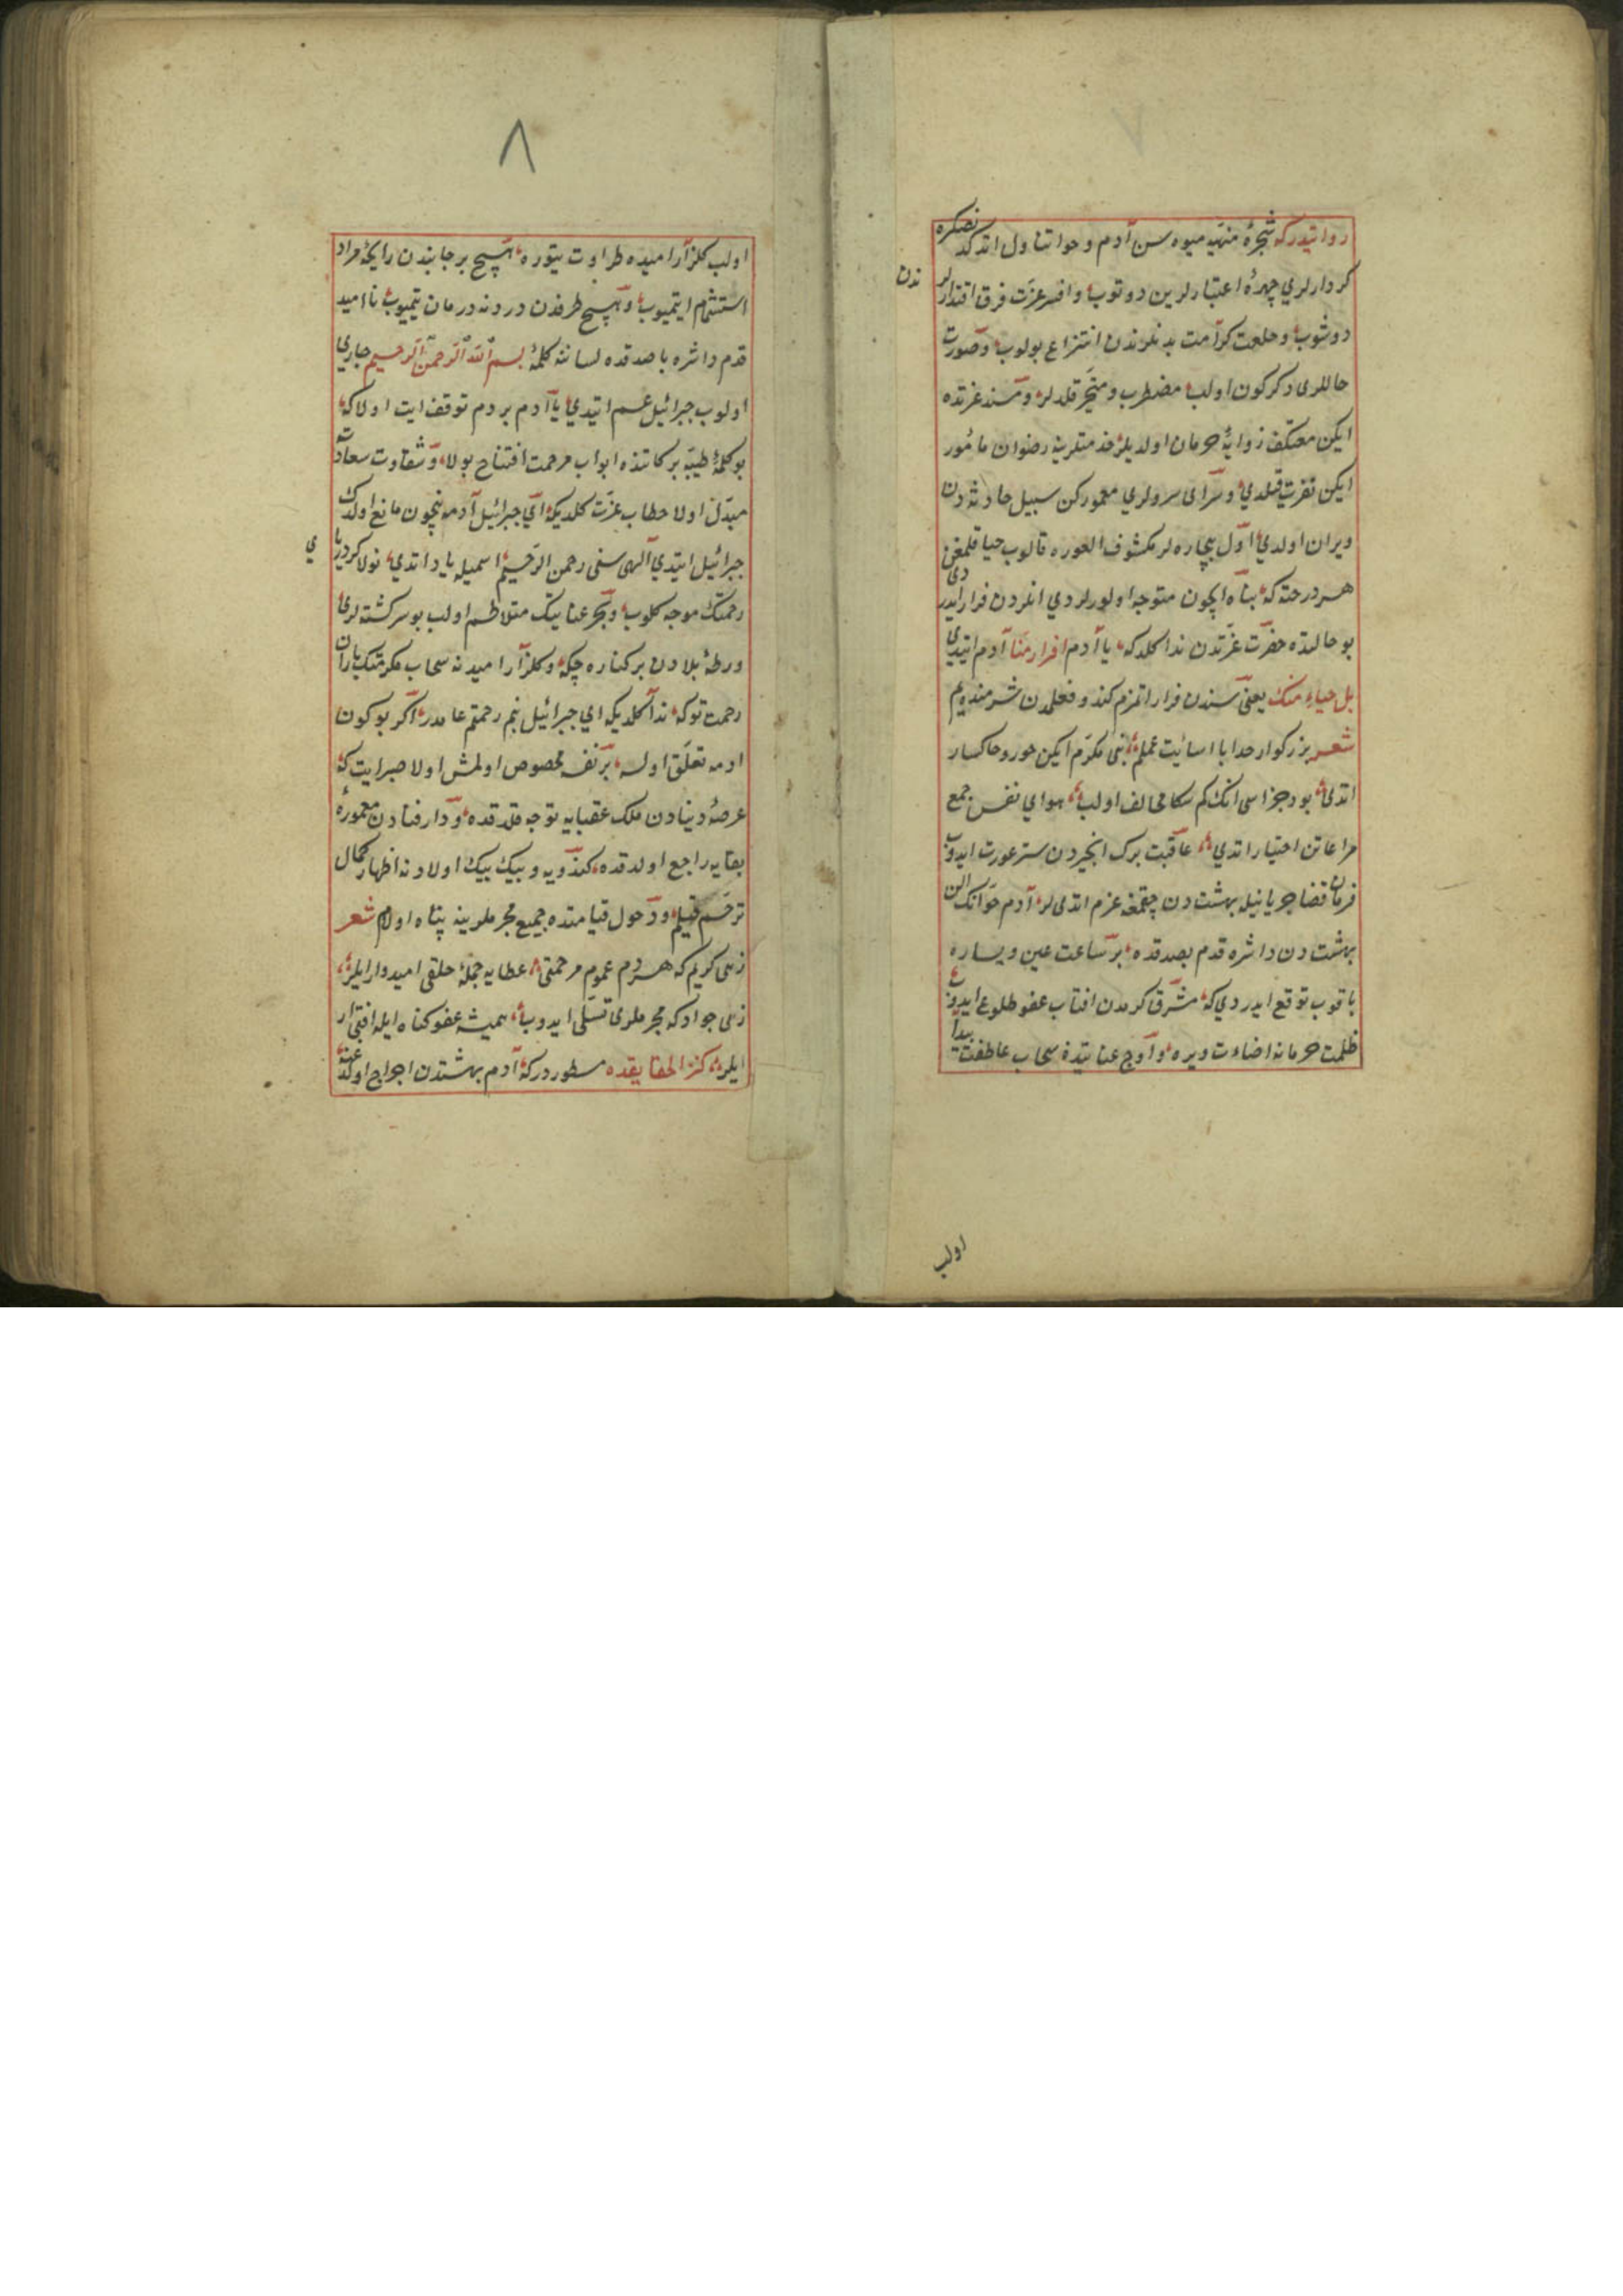 روایتدركه شجرهٔ منهیه میوه سن آدم و حوا تناول اتدكدنصكره
كردارلری چهرهٔ اعتبارلرین دوتوب وافسر عزت فرق اقتدارلرندن
دوشوب وخلعت كرامت بدنلرندن انتزاع بولوب وصورت
حاللری دكركون اولب مضطرب ومتحیر قلدلر ومسند عزتده
ایكن معتكف زوایهٔ حرمان اولدیلر خدمتلرینه رضوان مامور
ایكن نفرت قیلدی وسرای سرورلری معمور كن سبیل حادثه دن
ویران اولدی اول بیچاره لر مكشوف العوره قالوب حیا قلمغن
هر درخته كه پناه ایچون متوجه اولورلردی انلردن فرار ایدردی
بو حالتده حضرت عزتدن ندا كلدكه یا آدم افرار منا آدم ایتدی
بل حیاء منك یعنی سندن فرار اتمزم كندو فعلمدن شرمنده یم
شعر بزركوار خدایا اسائت عملم بنی مكرم ایكن خور وخاكسار
اتدی بودر جزاسی انك كم سكا مخالف اولب هوای نفس جمع
مراعاتن اختیار اتدی عاقبت برك انجیردن ستر عورت ایدوب
فرمان قضا جریانیله بهشت دن چقمغه عزم اتدیلر آدم حوانك الن
بهشت دن داشره قدم بصدقده بر ساعت یمین ویساره
باقوب توقع ایدردی كه مشرق كرمدن افتاب عفو طلوع ایدوب
ظلمت حرمانه اضاءت ویره واوج عنایتده سحاب عاطفت پیدا
اولب
۸
اولب كلزار امیده طراوت یتوره هیچ بر جانبدن رایحهٔ مراد
استشمام ایتمیوب وهیچ طرفدن دردنه درمان یتمیوب ناامید
قدم داشره باصدقده لساننه كلمهٔ بسم الله الرحمن الرحیم جاری
اولوب جبرائیل عم ایتدی یا آدم بر دم توقف ایت اولاكه
بو كلمهٔ طیبه بركاتنده ابواب مرحمت افتتاح بولا وشقاوت سعادته
مبدل اولا خطاب عزت كلدیكه ای جبرائیل آدمه نیچون مانع اولدك
جبرائیل ایتدی الهی سنی رحمن الرحیم اسمیله یاد اتدی نولا كر دریای
رحمتك موجه كلوب وبحر عنایتك متلاطم اولب بو سركشته لری
ورطهٔ بلادن بر كناره چكه وكلزار امیدنه سحاب مكرمتك باران
رحمت توكه ندا كلدیكه ای جبرائیل بنم رحمتم عامدر اكر بو كون
ادمه تعلق اولسه بر نفسه مخصوص اولمش اولا صبر ایت كه
عرصهٔ دنیادن ملك عقبایه توجه قلدقده ودار فنادن معمورهٔ
بقایه راجع اولدقده كندویه وبیك بیك اولادنه اظهار كمال
ترحم قیلم ودخول قیامتده جمیع مجرملرینه پناه اولام شعر
زهی كریم كه هر دم عموم مرحمتی عطایه جملهٔ خلقی امیدوار ایلر
زهی جواد كه مجرملری تسلی ایدوب همیشه عفو كناه ایله افتخار
ایلر كنز الحقایقده مسطوردركه آدم بهشتدن اخراج اولد